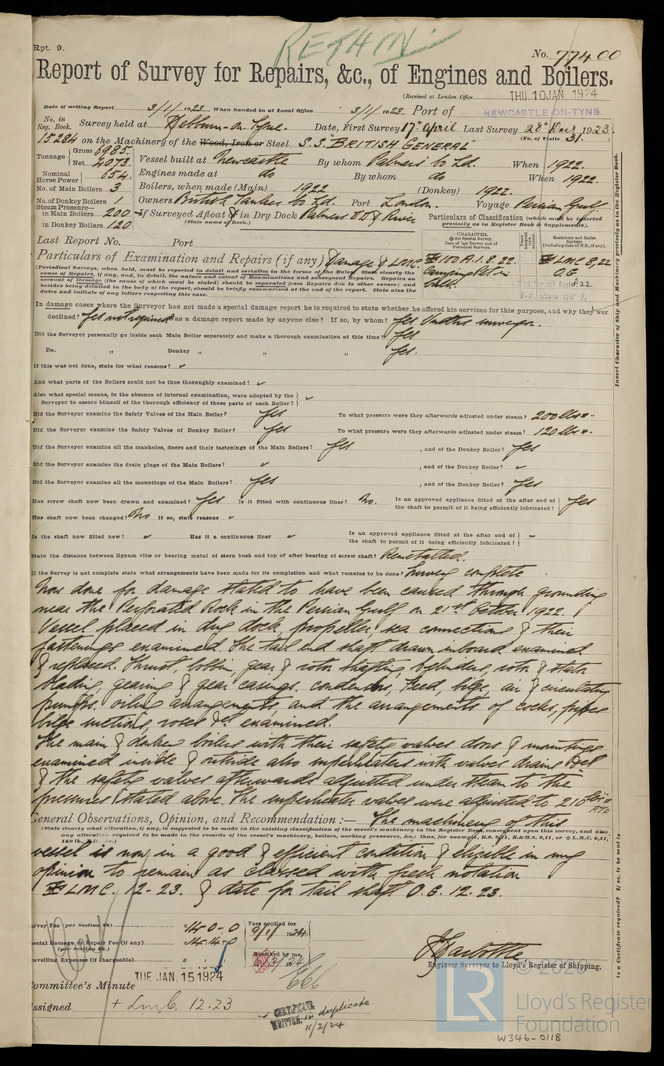 RETHIN
Rpt. 9.
No. 77400
Report of Survey for Repairs, &c., of Engines and Boilers.
(Received at London Office THU. 10 JAN. 1924
Date of writing Report 3/1/1923 When handed in at Local Office 3/1/1923 Port of NEWCASTLE-ON-TYNE
No. in Reg. Book. Survey held at Hebburn-on-Tyne. Date, First Survey 17th April Last Survey 28th Dec 1923.
(No. of Visits 31
15284 on the Machinery of the Wood, Iron or Steel S.S. "BRITISH GENERAL"
Tonnage Gross 6985 Net 4073 Vessel built at Newcastle By whom Palmers Co Ld. When 1922.
Nominal Horse Power 654 Engines made at do By whom do When 1922.
No. of Main Boilers 3 Boilers, when made (Main) 1922 (Donkey) 1922.
No. of Donkey Boilers 1 Owners British Tanker Co Ld. Port London. Voyage Persian Gulf
Steam Pressure— in Main Boilers 200 If Surveyed Afloat & in Dry Dock Palmers D D & River
in Donkey Boilers 120 (State name of Dock.)
Particulars of Classification (which must be inserted precisely as in Register Book & Supplements).
Last Report No. Port
Particulars of Examination and Repairs (if any) Damage & LMC.
+100A1. 8.22. +LMC 8,22
carrying Pet. in bulk. O.G.
(Periodical Surveys, when held, must be reported in detail and seriatim in the terms of the Rules.
In damage cases where the Surveyor has not made a special damage report he is required to state whether he offered his services for this purpose, and why they were
declined? Yes not required Has a damage report made by anyone else? If so, by whom? Yes Underwriters surveyor.
Did the Surveyor personally go inside each Main Boiler separately and make a thorough examination at this time? Yes
Do. „ Donkey „ „ „ Yes.
If this was not done, state for what reasons?
And what parts of the Boilers could not be thus thoroughly examined?
Also what special means, in the absence of internal examination, were adopted by the Surveyor to assure himself of the thorough efficiency of those parts of each Boiler?
Did the Surveyor examine the Safety Valves of the Main Boiler? Yes To what pressure were they afterwards adjusted under steam? 200 lbs
Did the Surveyor examine the Safety Valves of Donkey Boiler? Yes To what pressure were they afterwards adjusted under steam? 120 lbs
Did the Surveyor examine all the manholes, doors and their fastenings of the Main Boilers? Yes , and of the Donkey Boiler? Yes
Did the Surveyor examine the drain plugs of the Main Boilers? , and of the Donkey Boiler?
Did the Surveyor examine all the mountings of the Main Boilers? Yes , and of the Donkey Boiler? Yes
Has screw shaft now been drawn and examined? Yes Is it fitted with continuous liner? No. Is an approved appliance fitted at the after end of the shaft to permit of it being efficiently lubricated? Yes
Has shaft now been changed? No If so, state reasons
Is the shaft now fitted new? Has it a continuous liner Is an approved appliance fitted at the after end of the shaft to permit of it being efficiently lubricated?
State the distance between lignum vitæ or bearing metal of stern bush and top of after bearing of screw shaft? Remetalled.
If the Survey is not complete state what arrangements have been made for its completion and what remains to be done? Survey complete
Now done for damage stated to have been caused through grounding
near the Perforated Rock in the Persian Gulf on 21st October 1922.
Vessel placed in dry dock, propeller, sea connections & their
fastenings examined. The tail end shaft drawn inboard examined
& replaced. Thrust, gear & rotor shafting, cylinders, rotor & stator
blading gearing & gear casings, condensers, feed, bilge, air & circulating
pumps, oiling arrangements, and the arrangements of cocks, pipes
bilge suctions, roses &c examined.
The main & donkey boilers with their safety valves doors & mountings
examined inside & outside also superheaters with valves drains &c
& the safety valves afterwards adjusted under steam to the
pressures stated above. The superheater valves were adjusted to 210 lbs
General Observations, Opinion, and Recommendation :— The machinery of this
vessel is now in a good & efficient condition & eligible in my
opinion to remain as classed with fresh notation
+ LMC. 12-23. & date for tail shaft O.G. 12.23.
Survey Fee (per Section 28) 40-0-0 Fees applied for 9/1/1924
Special Damage or Repair Fee (if any) (per Section 28.)
Travelling Expenses (if chargeable) Received by me
Engineer Surveyor to Lloyd's Register of Shipping.
Committee's Minute TUE. JAN. 15 1924
Assigned + LMC. 12.23
CERTIFICATE WRITTEN in duplicate
11/2/24
Insert Character of Ship and Machinery precisely as in the Register Book.
Is a Certificate required? If so, to be sent to
© 2020
LR
Lloyd's Register
Foundation
W346-0118